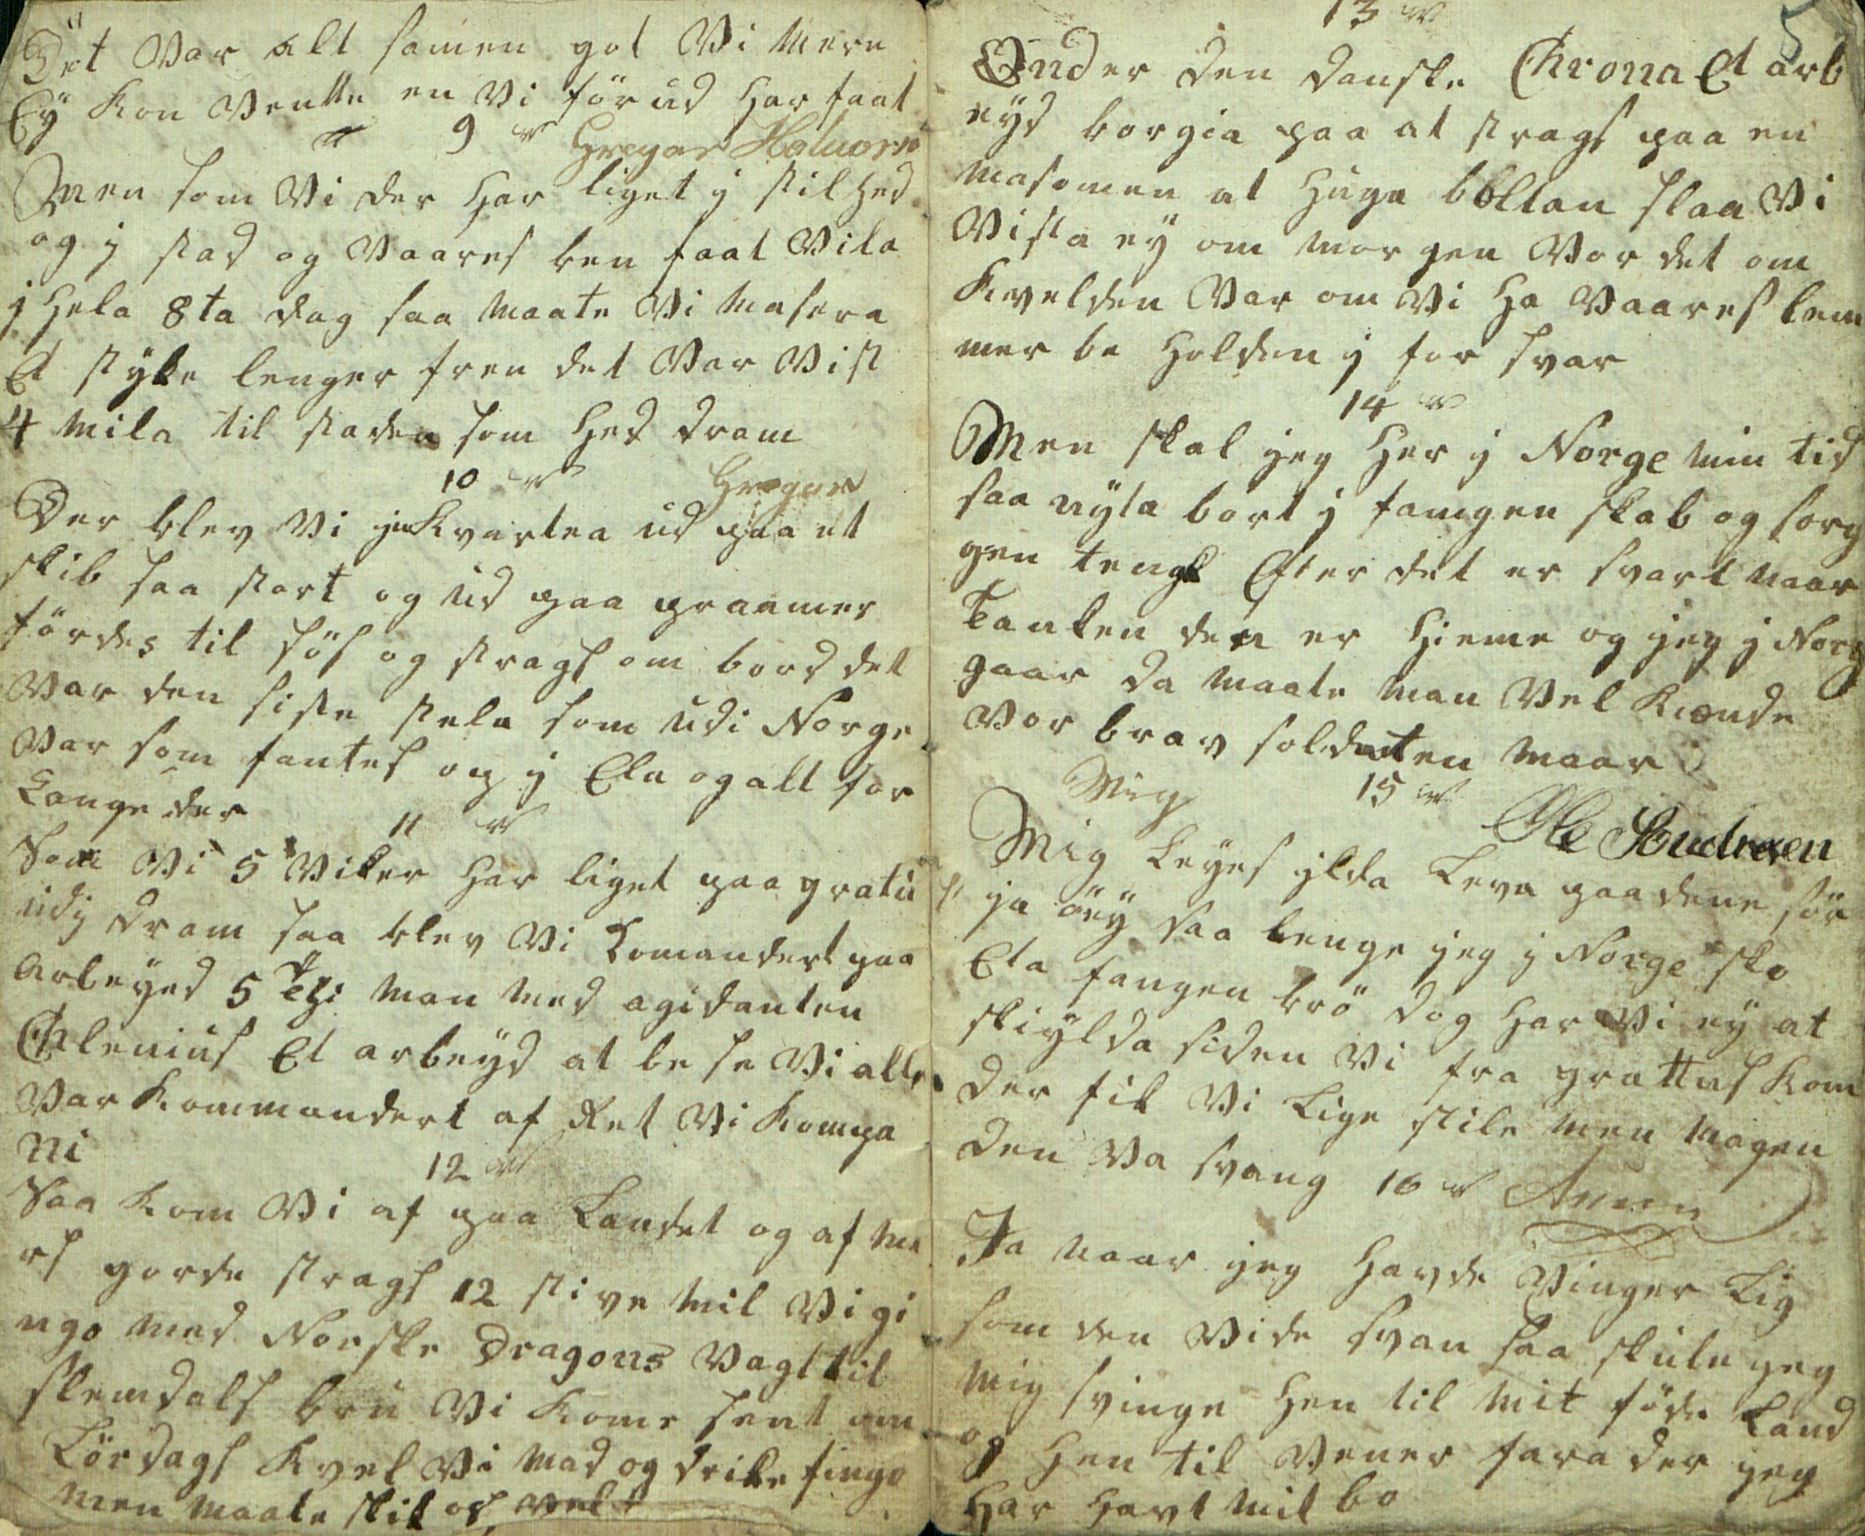 Det Var alt samen got Vi mere
Ey Kon Vente en Vi för ud har faat
9 v Gregar Halvors
Men som Vi der har liget y stilhed
og y stad og Vaares ben faat Vila
y hela 8ta dag saa maate Vi masera
Et styke lenger fren det Var Vist
4 mila til staden som hed dram
10 v Gregar
Der blev Vi jnKvartea ud paa et
skib saa stort og ud paa praamer
fördes til söß og strags om bord det
Var den siste stela som udi Norge
Var som fantes og y Eta og alt for
Lange der
11 v
Som Vi 5 Viker har liget paa gratu
udj dram saa blev Vi Comandert paa
Arbeyed 5 man med agidanten
Chlenius Et arbeyd at be se Vi alle
Var Kommandert af Ret Vi Kompa
ni
12 v
Saa Kom Vi af paa Landet og af ma
rs gorde strags 12 stive mil Vi gi
ngo med Norske Dragons Vagt til
slemdals bru Vi Kome sent om
Lördags Kvel Vi mad og drike fingo
men maate skit og vel
13 v
Under den danske Chrona Et arb
eyd borgia paa at strags paa en
masomen at huga boltan slaa Vi
Vista ey om morgen Vor det om
Kvelden Var om Vi ha Vaares lem
mer be holden y for svar
14 v
Men skal jeg her y Norge min tid
saa nyta bort y fangen skab og sorg
gen tengt Efter det er svart naar
Tanken den er hieme og jeg y Norg
gaar da maate man Vel Kiende
Vor brav soldaten maar
Mig 15 v
Ole Andresen
Mig Leyes ilda Leva paa dene för
ja öey saa lenge jeg y Norge sko
Eta fangen brö dog har Vi ey at
skiylda siden Vi fra grattus Kom
der fik Vi Lige stile men magen
den Va svang 16 v
Ja naar jeg havde Vinger Lig
som den Vide svan saa skule jeg
mig svinge hen til mit föde Land
og hen til Vener fara der jeg
har havt mit bo